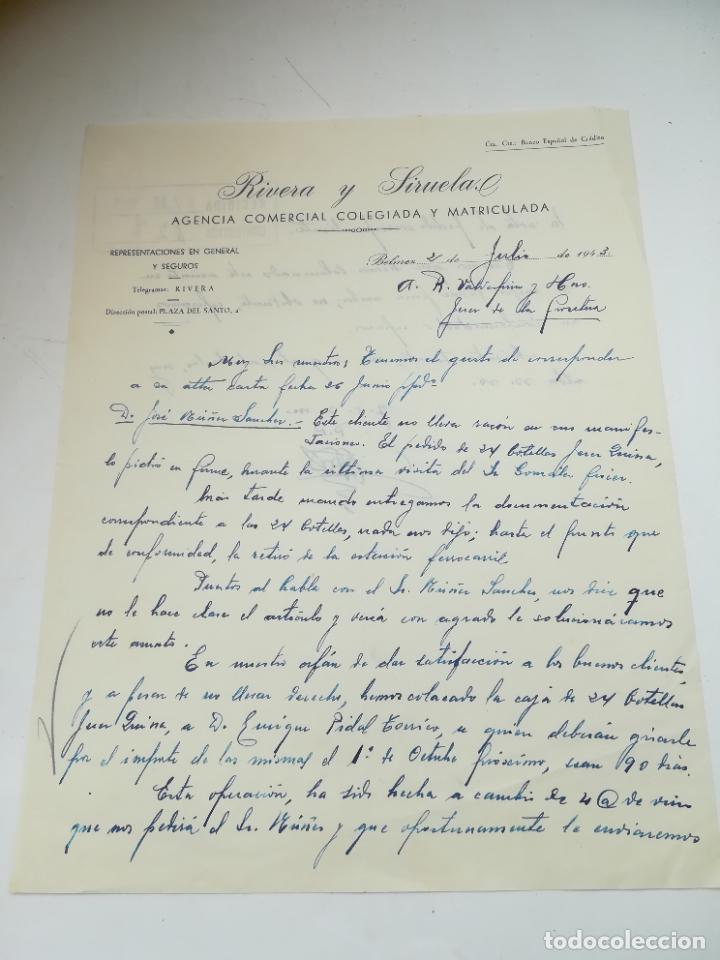 Cta. Cte.: Banco Español de Crédito
Rivera y Siruela
AGENCIA COMERCIAL COLEGIADA Y MATRICULADA
REPRESENTACIONES EN GENERAL
Y SEGUROS
Telegramas: RIVERA
Dirección postal: PLAZA DEL SANTO, 4
Belmez 2 de Julio de 1943
A. R. Valdespino y Hno.
Jerez de la Frontera
Muy Sres nuestros: Tenemos el gusto de corresponder
a su atta carta fecha 26 Junio ppdo
D. José Núñez Sanchez.- Este cliente no lleva razón en sus manifes-
taciones. El pedido de 24 botellas Jerez Quina,
lo pidió en firme, durante la última visita del Sr Gonzalez
Más tarde cuando entregamos la documentación
correspondiente a las 24 botellas, nada nos dijo; hasta el punto que
de conformidad, la retiró de la estación ferrocarril.
Puestos al habla con el Sr. Núñez Sanchez, nos dice que
no le hace clase el artículo y vería con agrado le solucionáramos
este asunto.
En nuestro afán de dar satisfacción a los buenos clientes,
y a pesar de no llevar derecho, hemos colocado la caja de 24 botellas
Jerez Quina, a D. Enrique Pidal Torrico, a quien deberán girarle
por el importe de las mismas el 1º de Octubre próximo, sean 90 días.
Esta operación, ha sido hecha a cambio de 4 @ de vino
que nos pedirá el Sr. Núñez y que oportunamente le enviaremos
todocoleccion